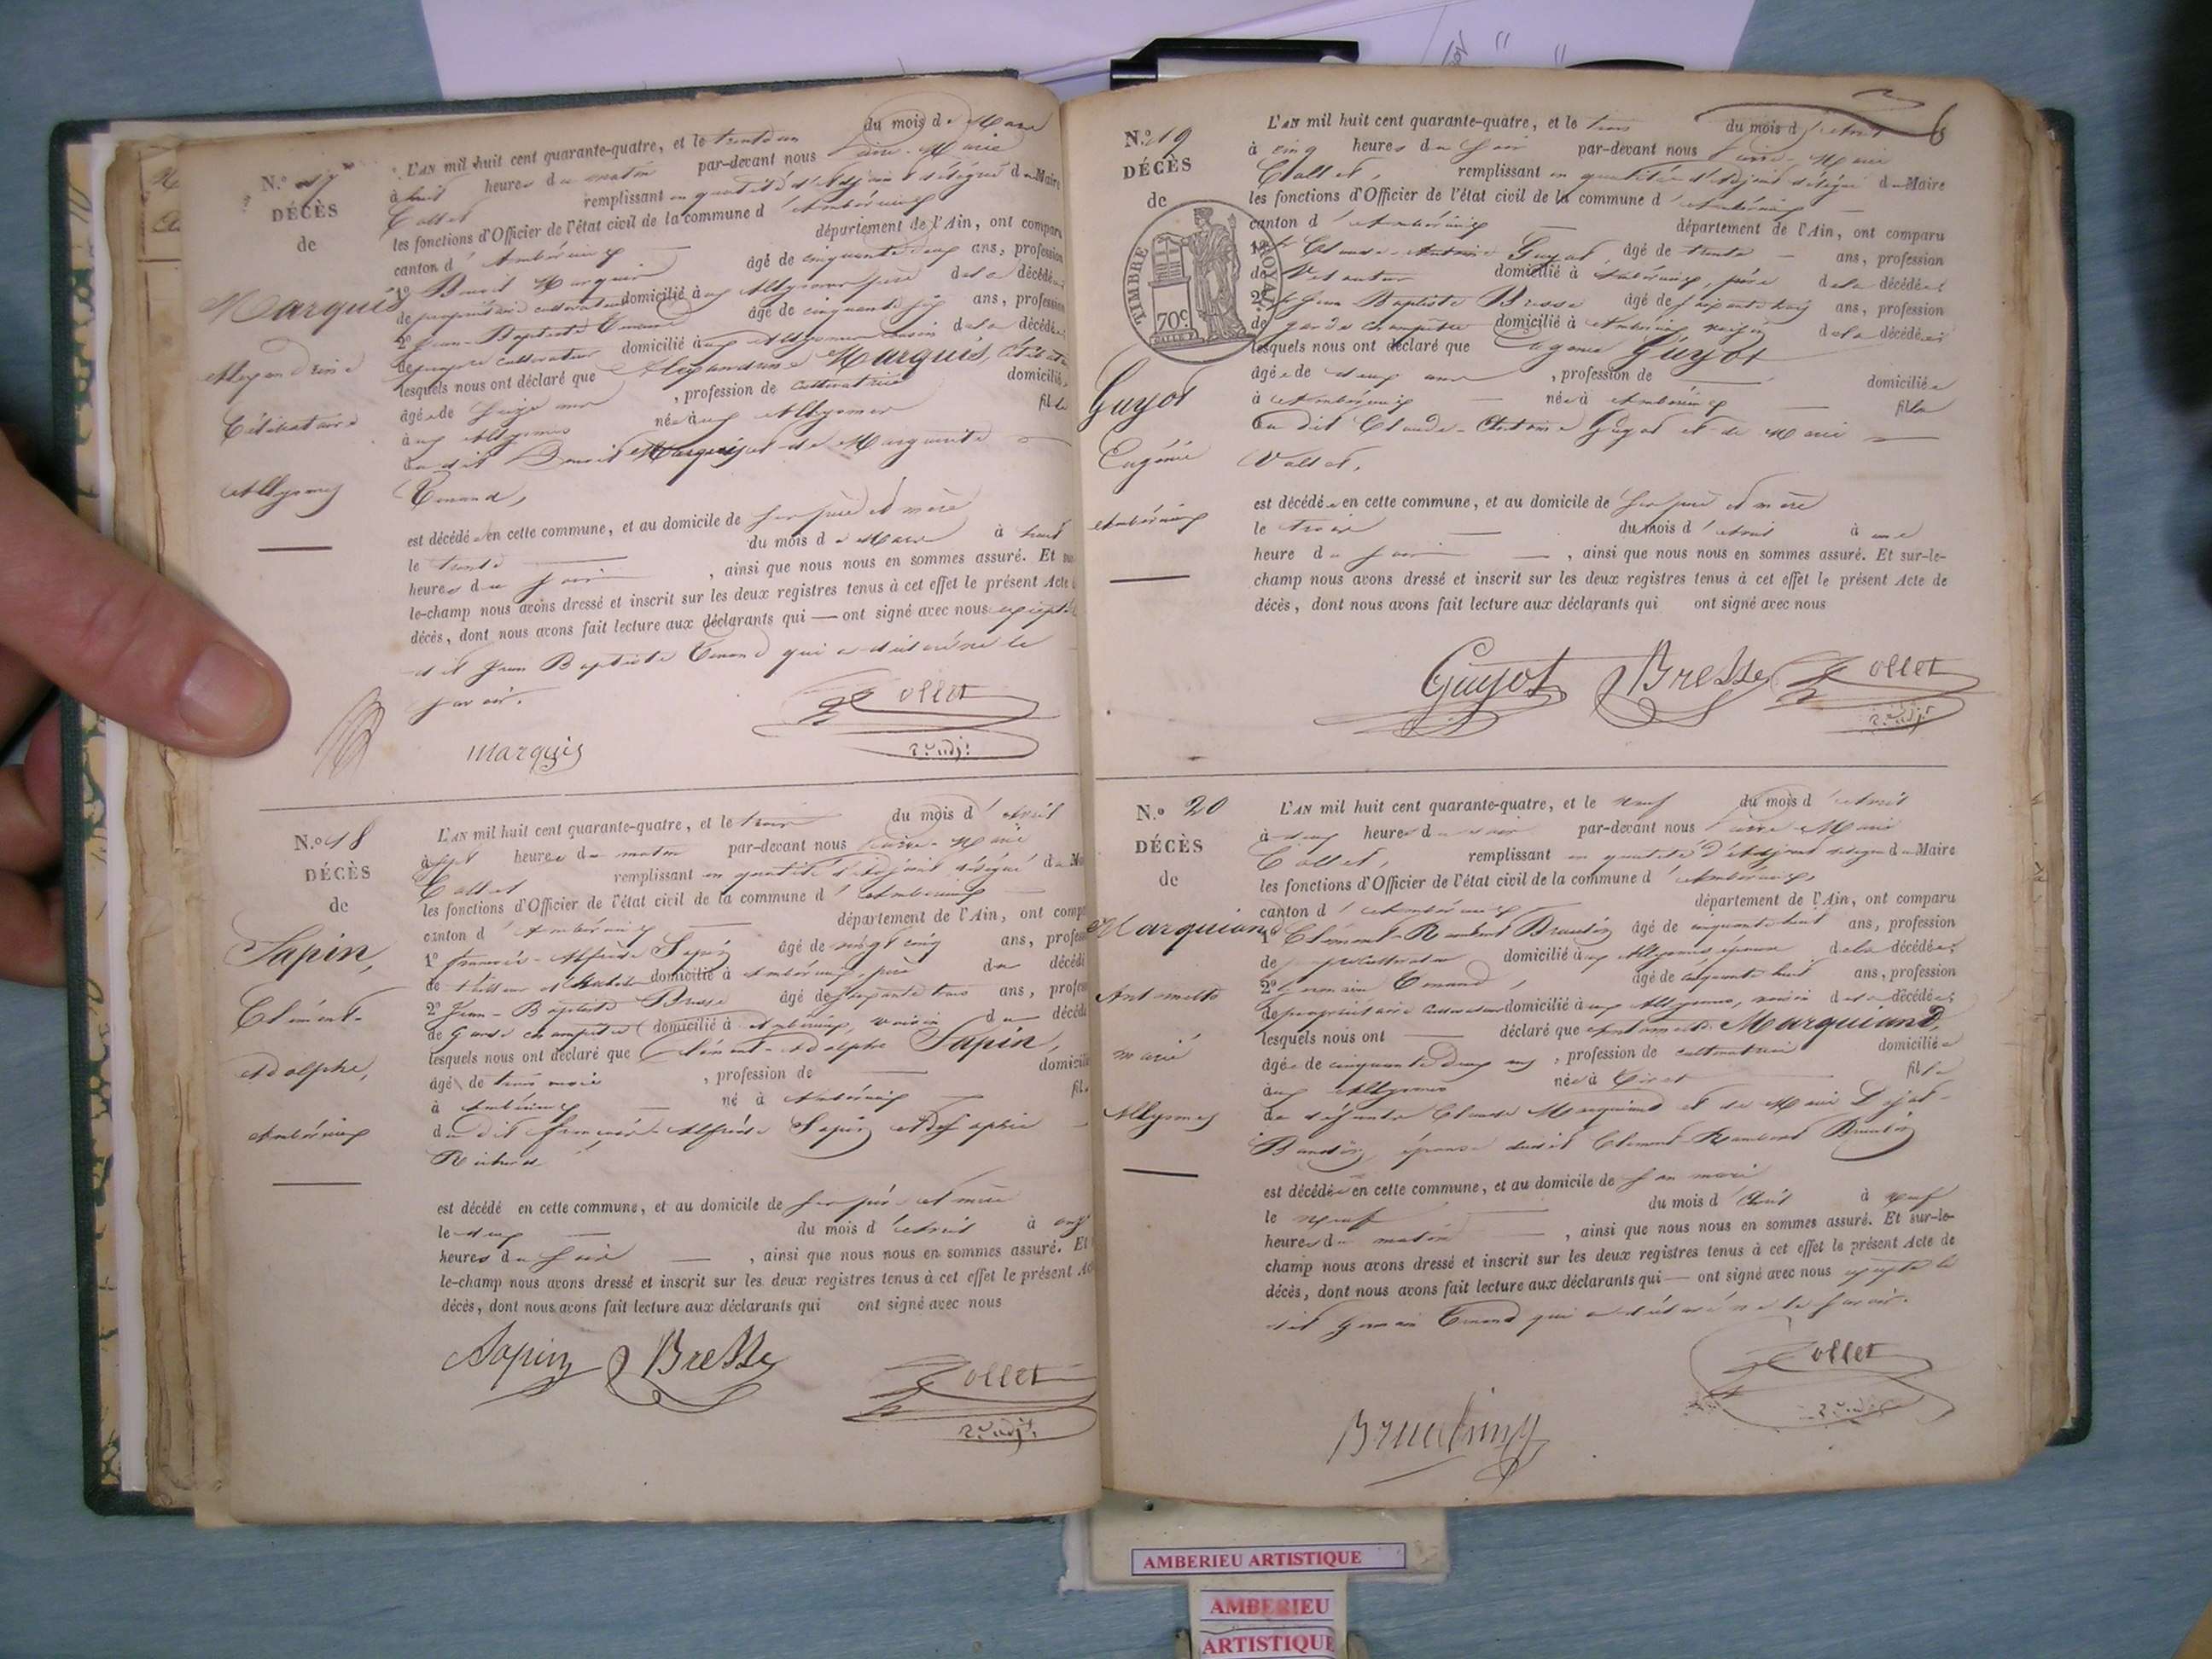 N.o 17
DÉCÈS
de
Marquis
Alexandrine
Célibataire
Allymes
L'AN mil huit cent quarante-quatre, et le trente un du mois de Mars
à huit heures du matin par-devant nous Pierre-Marie
Collet remplissant en qualité d'Adjoint délégué du Maire
les fonctions d'Officier de l'état civil de la commune d'Ambérieux
canton d'Ambérieux département de l'Ain, ont comparu
1o Benoit Marquis âgé de cinquante deux ans, profession
de propriétaire cultivateur domicilié aux Allymes père de la décédée
2o Jean-Baptiste Tenand âgé de cinquante six ans, profession
de propre cultivateur domicilié aux Allymes cousin de la décédée
lesquels nous ont déclaré que Alexandrine Marquis, Célibataire
âgée de seize ans , profession de cultivatrice domiciliée
aux Allymes née aux Allymes fille
du dit Benoit Marquis et de Marguerite
Tenand,
est décédée en cette commune, et au domicile de ses père et mère
le trente du mois de Mars à huit
heures du soir , ainsi que nous nous en sommes assuré. Et
le-champ nous avons dressé et inscrit sur les deux registres tenus à cet effet le présent Acte
décès, dont nous avons fait lecture aux déclarants qui — ont signé avec nous excepté
dit Jean Baptiste Tenand qui a déclaré ne le
savoir.
Marquis
Collet
2e adj.
N.o 18
DÉCÈS
de
Sapin,
Clément-
Adolphe,
Ambérieux
L'AN mil huit cent quarante-quatre, et le trois du mois d'Avril
à sept heures du matin par-devant nous Pierre-Marie
Collet remplissant en qualité d'Adjoint délégué du
les fonctions d'Officier de l'état civil de la commune d'Ambérieux
canton d'Ambérieux département de l'Ain, ont
1o François-Alfréde Sapin âgé de vingt cinq ans,
de tailleur d'habits domicilié à Ambérieux, père du décédé
2o Jean-Baptiste Bresse âgé de soixante trois ans,
de Garde champêtre domicilié à Ambérieux, voisin du décédé
lesquels nous ont déclaré que Clément-Adolphe Sapin,
âgé de trois mois , profession de domicilié
à Ambérieux né à Ambérieux fils
du dit François-Alfréde Sapin et de Sophie
est décédé en cette commune, et au domicile de ses père et mère
le deux du mois d'Avril à onze
heures du soir , ainsi que nous nous en sommes assuré. Et
le-champ nous avons dressé et inscrit sur les deux registres tenus à cet effet le présent
décès, dont nous avons fait lecture aux déclarants qui ont signé avec nous
Sapin Bresse Collet
2e adj.
N.o 19
DÉCÈS
de
TIMBRE ROYAL
70c
Guyot
Eugénie
Ambérieux
L'AN mil huit cent quarante-quatre, et le trois du mois d'Avril
à cinq heures du soir par-devant nous Pierre-Marie
Collet, remplissant en qualité d'Adjoint délégué du Maire
les fonctions d'Officier de l'état civil de la commune d'Ambérieux
canton d'Ambérieux département de l'Ain, ont comparu
1o Claude-Antoine Guyot, âgé de trente ans, profession
de domicilié à Ambérieux, père de la décédée
2o Jean Baptiste Bresse âgé de soixante trois ans, profession
de garde champêtre domicilié à Ambérieux voisin de la décédée
lesquels nous ont déclaré que Eugénie Guyot
âgée de deux ans , profession de domiciliée
à Ambérieux née à Ambérieux fille
du dit Claude-Antoine Guyot et de Marie
Vallet.
est décédée en cette commune, et au domicile de ses père et mère
le trois du mois d'Avril à une
heure du soir , ainsi que nous nous en sommes assuré. Et sur-le-
champ nous avons dressé et inscrit sur les deux registres tenus à cet effet le présent Acte de
décès, dont nous avons fait lecture aux déclarants qui ont signé avec nous
Guyot Bresse Collet
2e adj.
N.o 20
DÉCÈS
de
Marquiand
Antoinette
marié
Allymes
L'AN mil huit cent quarante-quatre, et le neuf du mois d'Avril
à deux heures du soir par-devant nous Pierre-Marie
Collet, remplissant en qualité d'Adjoint délégué du Maire
les fonctions d'Officier de l'état civil de la commune d'Ambérieux,
canton d'Ambérieux département de l'Ain, ont comparu
1o Clément-Rambert Braudin âgé de cinquante huit ans, profession
de cultivateur domicilié aux Allymes époux de la décédée
2o Germain Tenand, âgé de cinquante huit ans, profession
de propriétaire cultivateur domicilié aux Allymes, voisin de la décédée
lesquels nous ont déclaré que Antoinette Marquiand,
âgée de cinquante deux ans , profession de cultivatrice domiciliée
aux Allymes née à fille
de défunts Claude Marquiand et de Marie
épouse dudit Clément Rambert
est décédée en cette commune, et au domicile de son mari
le neuf du mois d'Avril à neuf
heures du matin , ainsi que nous nous en sommes assuré. Et sur-le-
champ nous avons dressé et inscrit sur les deux registres tenus à cet effet le présent Acte de
décès, dont nous avons fait lecture aux déclarants qui — ont signé avec nous excepté le
dit Germain Tenand qui a déclaré ne le savoir.
Collet
2e adj.
AMBERIEU ARTISTIQUE
AMBERIEU
ARTISTIQUE